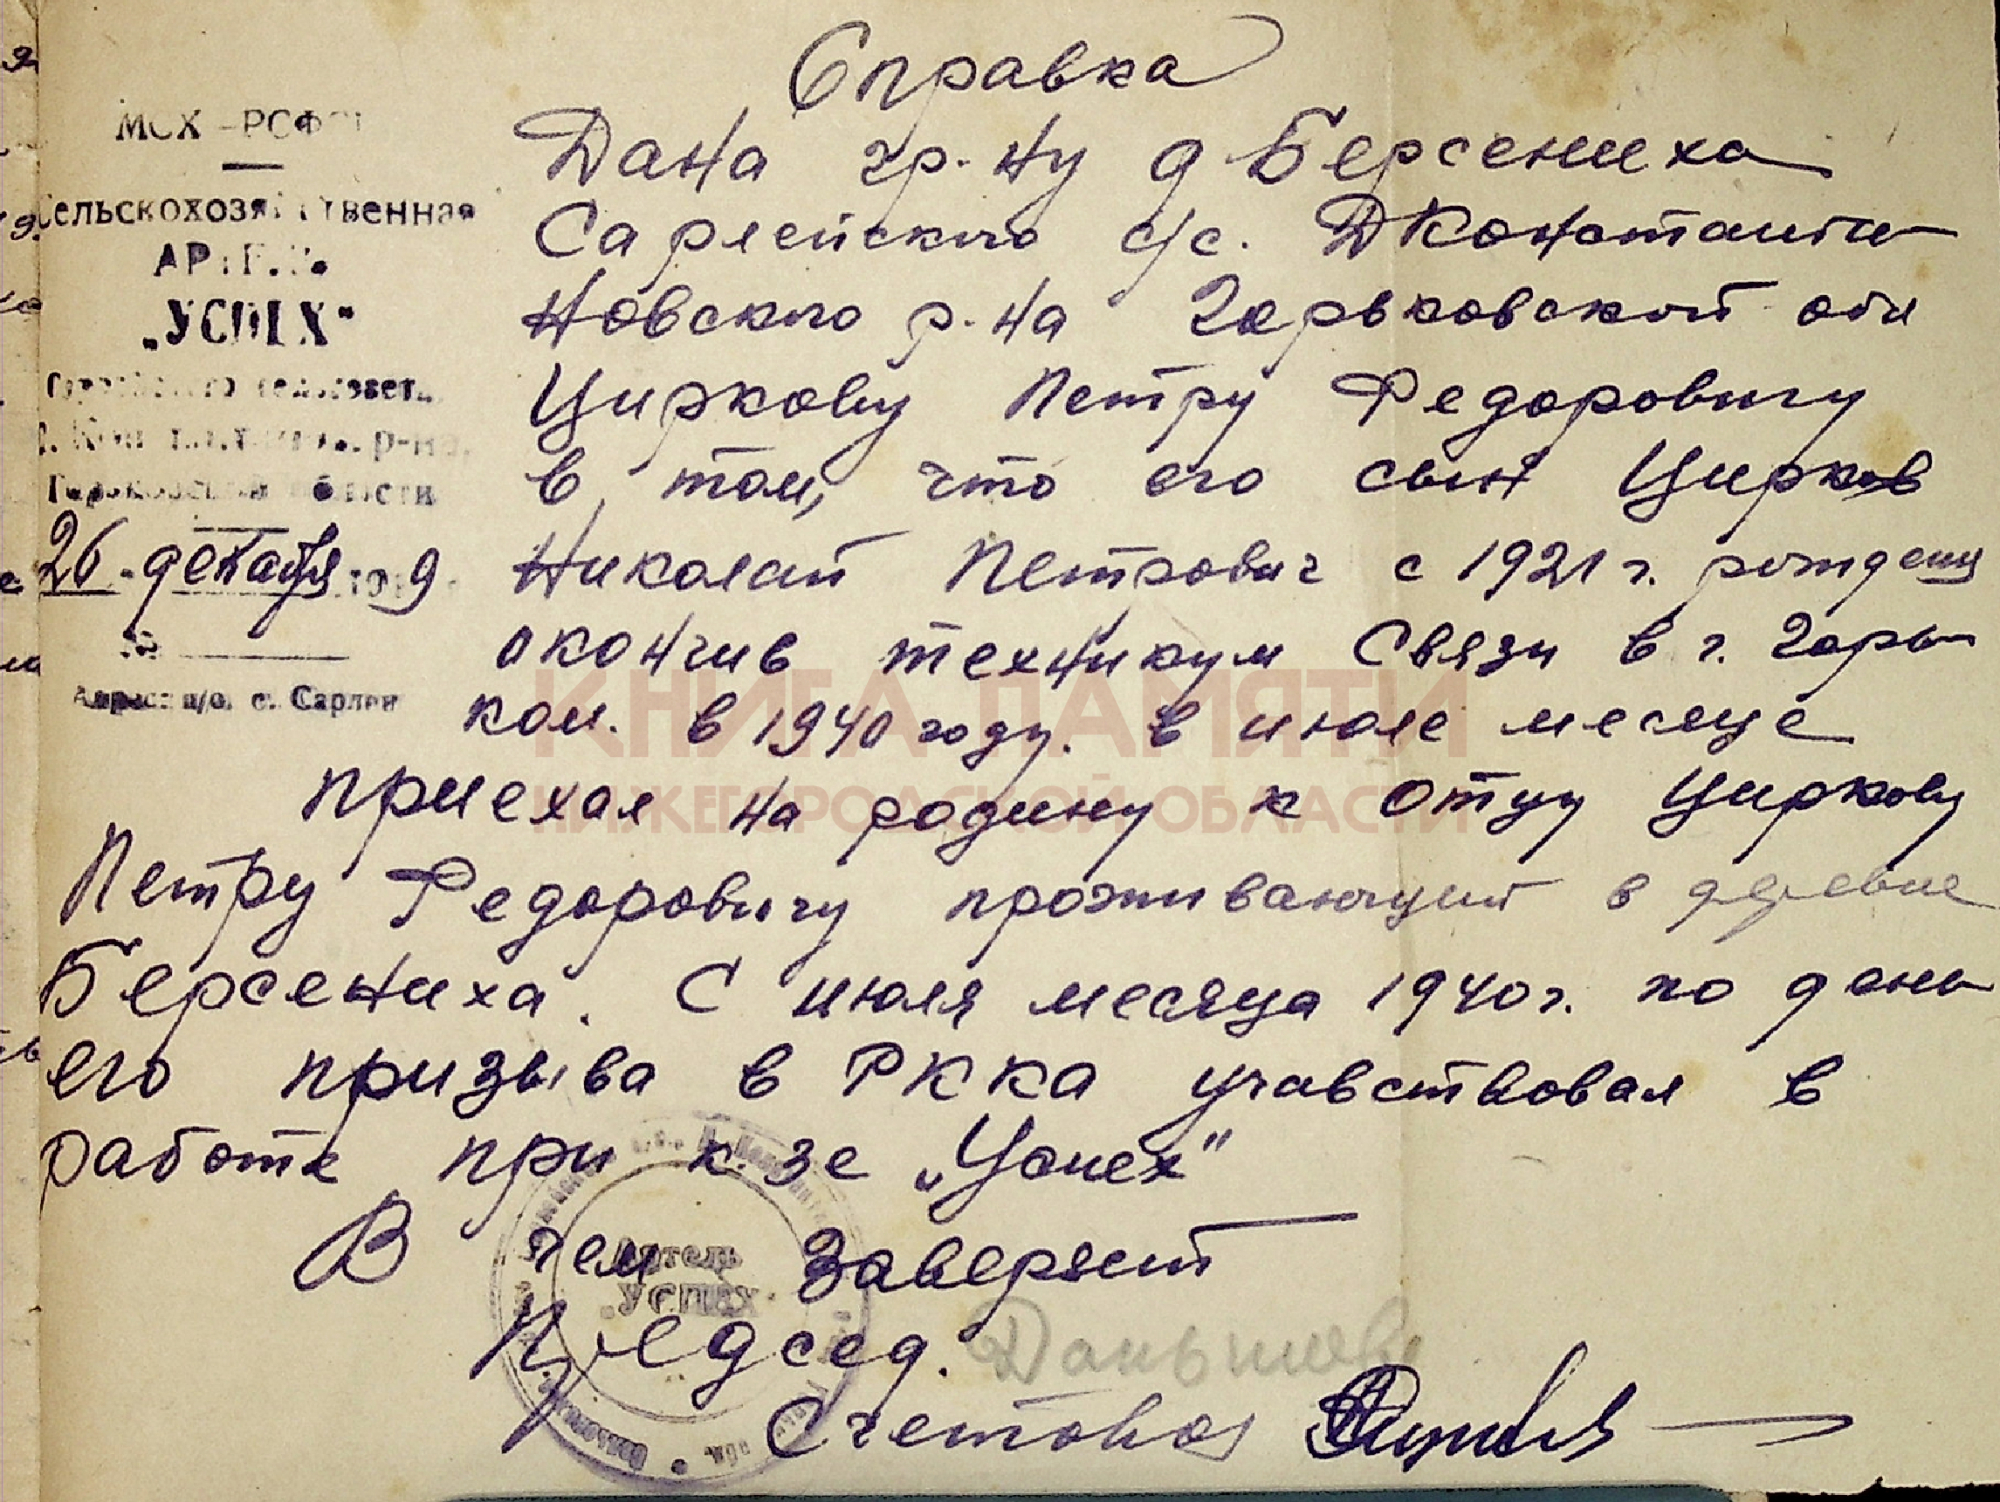 Справка
МСХ РСФС
Сельскохозяйственная
АРТЕЛЬ
„УСПЕХ"
Сарлейского сельсовета
Д. Константин. р-на,
Горьковской области
26 декабря 19 9
№
Адрес: п/о. с. Сарлеи
Дана гр-ну д Берсениха
Сарлейского с/с. ДКонстанти
новского р-на Горьковской обл
Циркову Петру Федоровичу
в том, что его сын Цирков
Николай Петрович с 1921 г. рождения
окончив техникум Связи в г. Горь
ком. в 1940 году. в июле месяце
приехал на родину к отцу Циркову
Петру Федоровичу проживающий в деревне
Берсениха. С июля месяца 1940 г. по день
его призыва в РККА учавствовал в
работе при к-зе „Успех"
В чем заверяет
Председ. Даньшов
Счетовод
Артель
"УСПЕХ"
КНИГА ПАМЯТИ
НИЖЕГОРОДСКОЙ ОБЛАСТИ